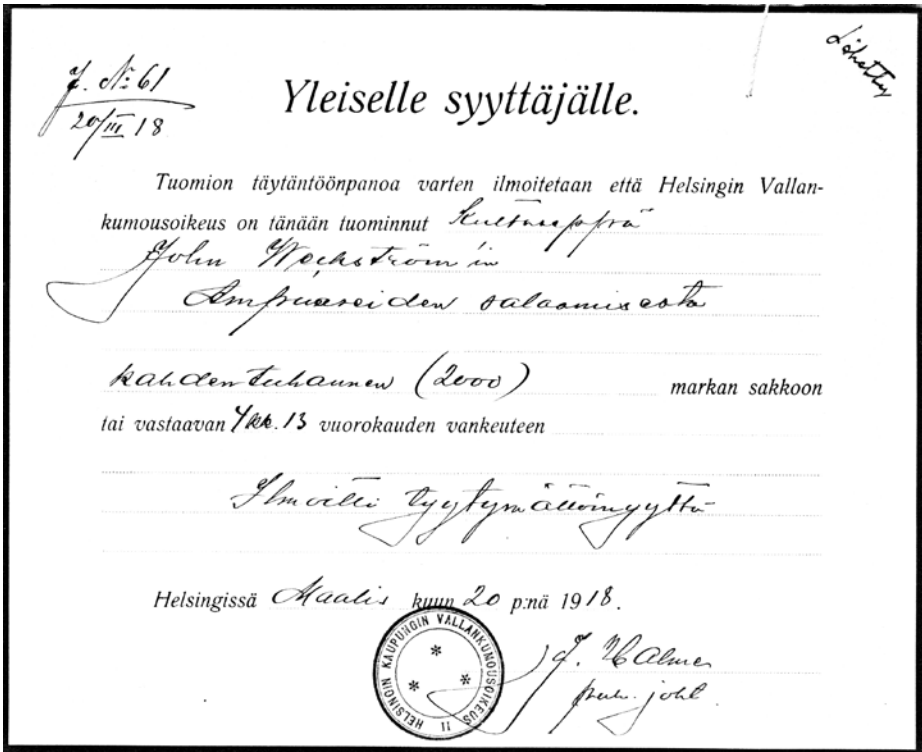 J. No: 61
20/III 18
Lähetetty
Yleiselle syyttäjälle.
Tuomion täytäntöönpanoa varten ilmoitetaan että Helsingin Vallan-
kumousoikeus on tänään tuominnut
John Weckström'in
Ampuaseiden salaamisesta
kahdentuhannen (2000) markan sakkoon
tai vastaavan kk. 13 vuorokauden vankeuteen
Ilmoitti tyytymättömyyttä
Helsingissä Maalis kuun 20 p:nä 1918.
HELSINGIN KAUPUNGIN VALLANKUMOUSOIKEUS II
J. Halme
puh. joht.